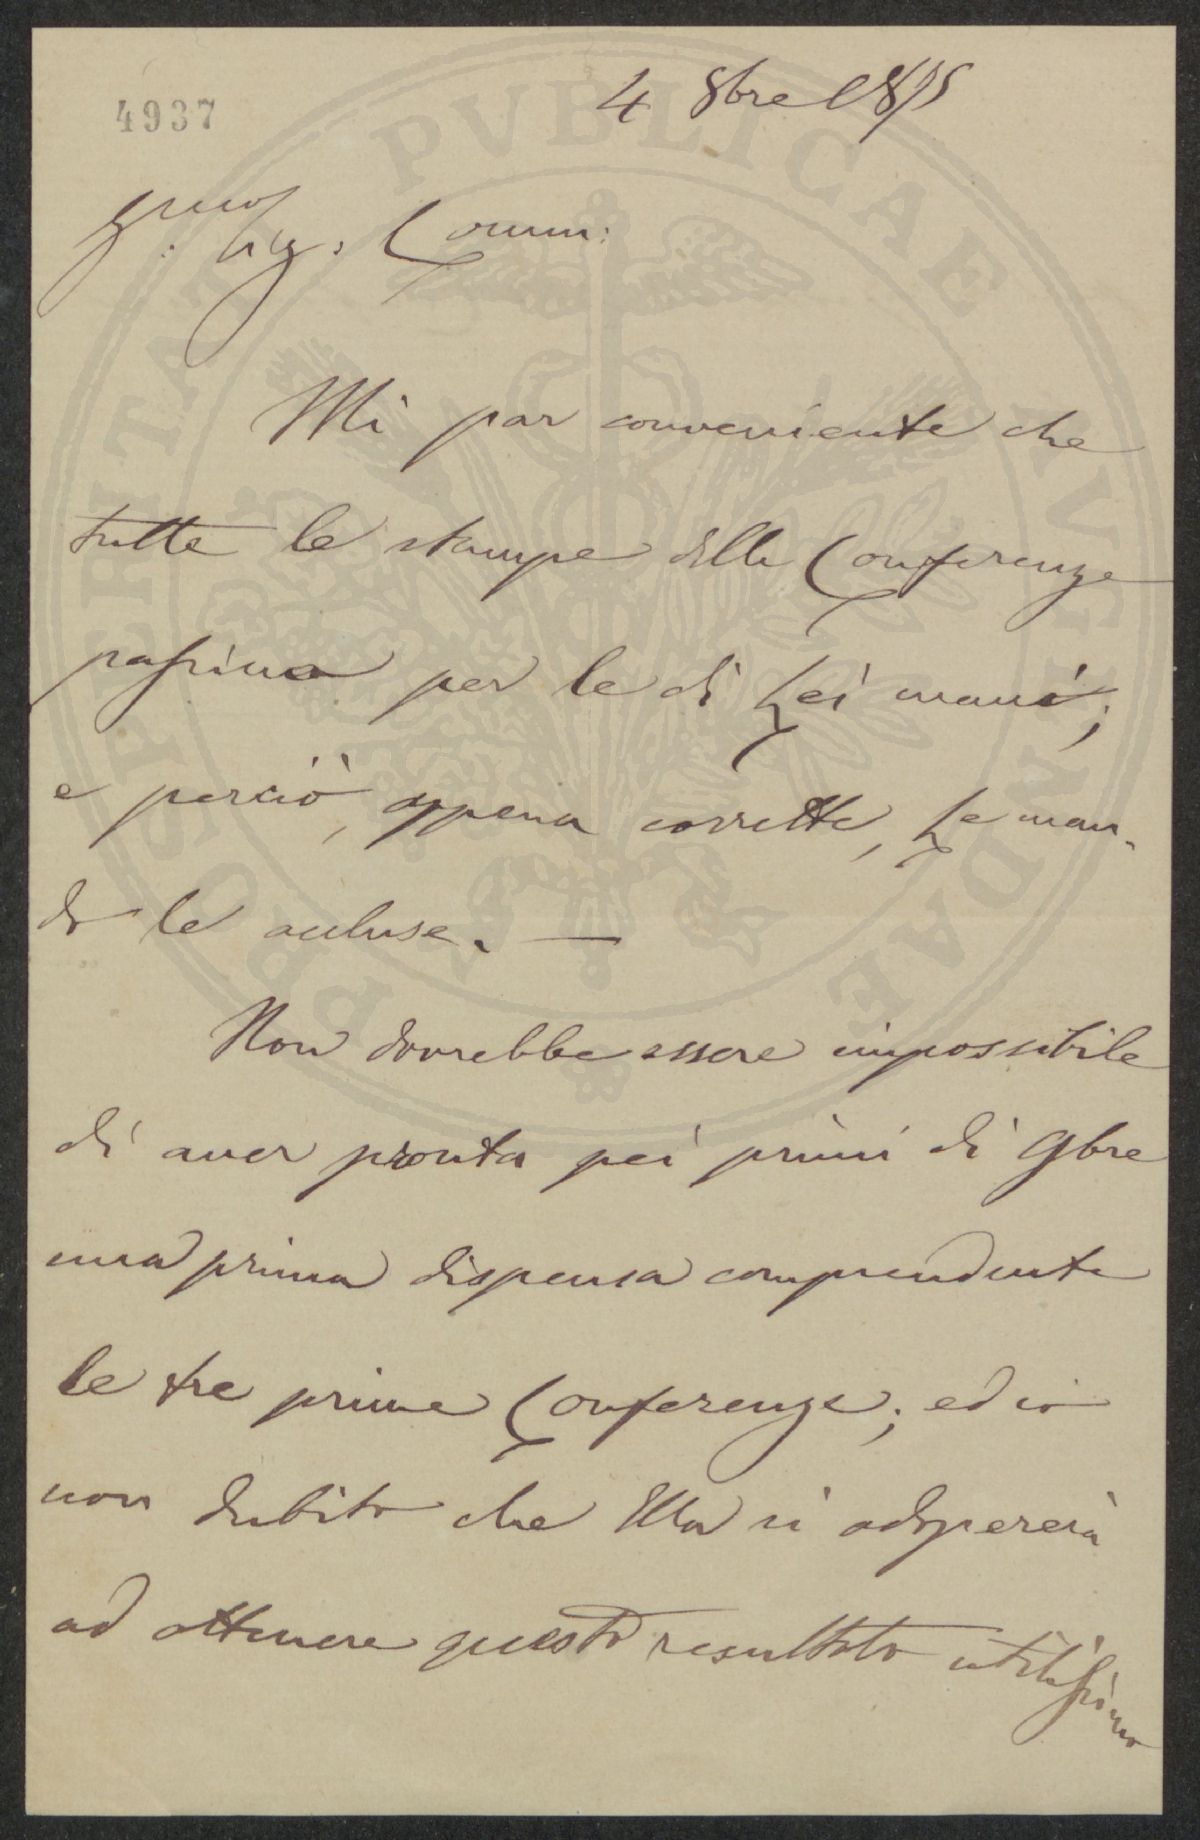 4937
4 8bre 1875
Sig. Comm:
Mi par conveniente che
tutte le stampe delle Conferenze
passino per le di Lei mani;
e perciò, appena corrette, Le man-
do le accluse. —
Non dovrebbe essere impossibile
di aver pronta pei primi di 9bre
una prima dispensa comprendente
le tre prime Conferenze; ed io
non dubito che Ella si adopererà
ad ottenere questo resultato utilissimo
PROSPERITATI PVBLICAE AVGENDAE